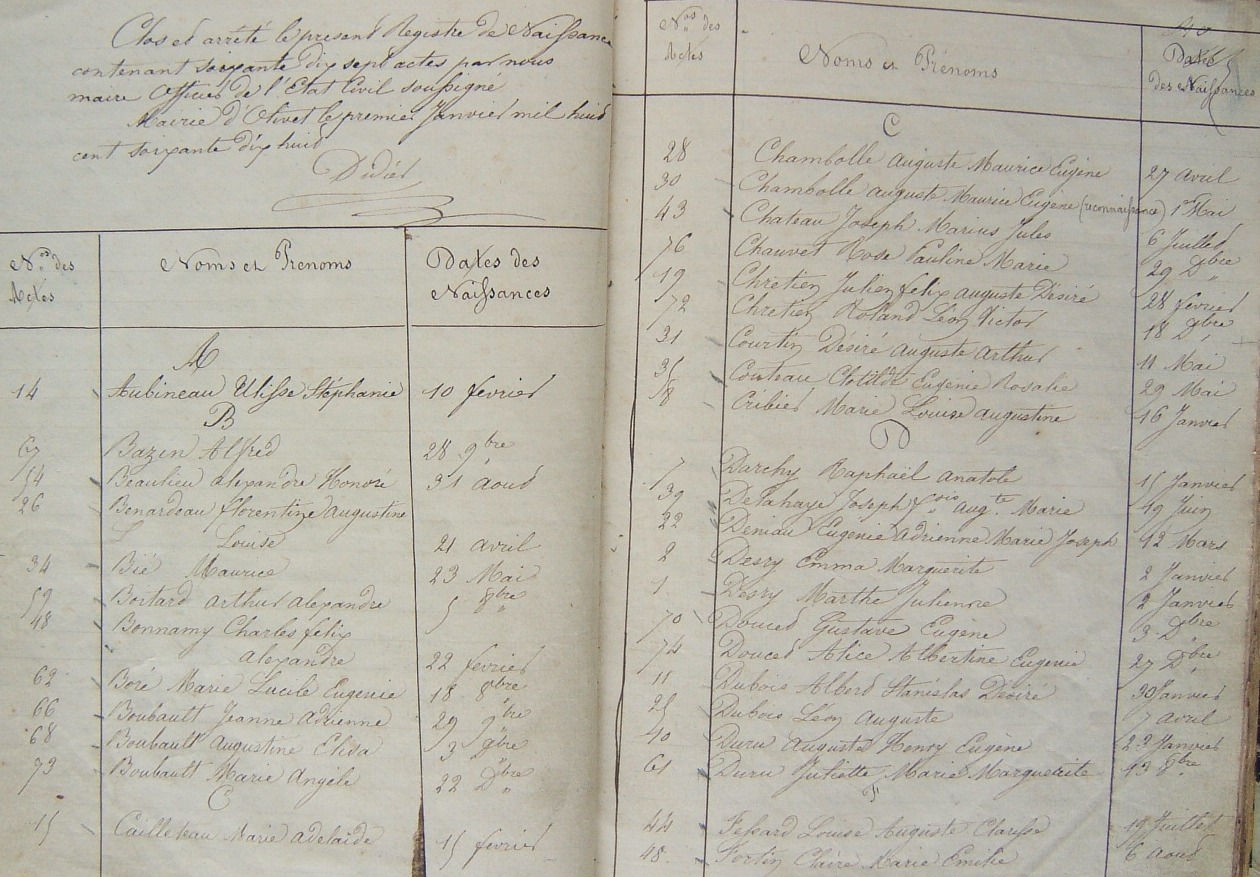 Clos et arrêté le présent Registre de Naissance
contenant soixante dix sept actes par nous
maire Officier de l'Etat Civil soussigné
Mairie d'Olivet le premier Janvier mil huit
cent soixante dix huit
Didier
Nos des Actes Noms et Prénoms Dates des Naissances
A
14 Aubineau Ulisse Stéphanie 10 février
B
67 Bazin Alfred 28 9bre
54 Beaulieu alexandre Honoré 31 août
26 Benardeau florentine Augustine
Louise 21 avril
34 Bié Maurice 23 Mai
59 Boitard arthur alexandre 5 8bre
Bonnamy Charles felix
alexandre 22 février
62 Boré Marie Lucile Eugenie 18 8bre
66 Boubault Jeanne adrienne 29 9bre
68 Boubault Augustine Elisa 3 Dbre
73 Boubault Marie Angèle 22 Dbre
C
15 Cailleteau Marie adelaïde 15 février
Nos des Actes Noms et Prénoms Dates des Naissances
C
28 Chambolle Auguste Maurice Eugène 27 avril
30 Chambolle auguste Maurice Eugène (reconnaissance) 1er Mai
43 Chateau Joseph Marius Jules 6 Juillet
76 Chauvet Rose Pauline Marie 29 Dbre
19 Chretien Julien felix auguste Désiré 28 février
72 Chretien Roland Léon Victor 18 Dbre
31 Courtin Désiré Auguste Arthur 11 Mai
35 Couteau Clotilde Eugénie Rosalie 29 Mai
8 Cribier Marie Louise augustine 16 Janvier
D
7 Darchy Raphaël anatole 15 Janvier
39 Delahaye Joseph fcois Augte Marie 19 Juin
22 Deniau Eugénie Adrienne Marie Joseph 12 Mars
2 Desry Emma Marguerite 2 Janvier
1 Desry Marthe Julienne 2 Janvier
70 Doucet Gustave Eugène 3 Dbre
74 Doucet Alice Albertine Eugenie 27 Dbre
11 Dubois Albert Stanislas Désiré Janvier
25 Dubois Léon Auguste 7 avril
40 Duru Auguste Henry Eugène 23
61 Duru Juliette Marie Marguerite 13 8bre
F
44 Fessard Louise Auguste Clarisse 19 Juillet
48 Fortin Claire Marie Emilie 6 août